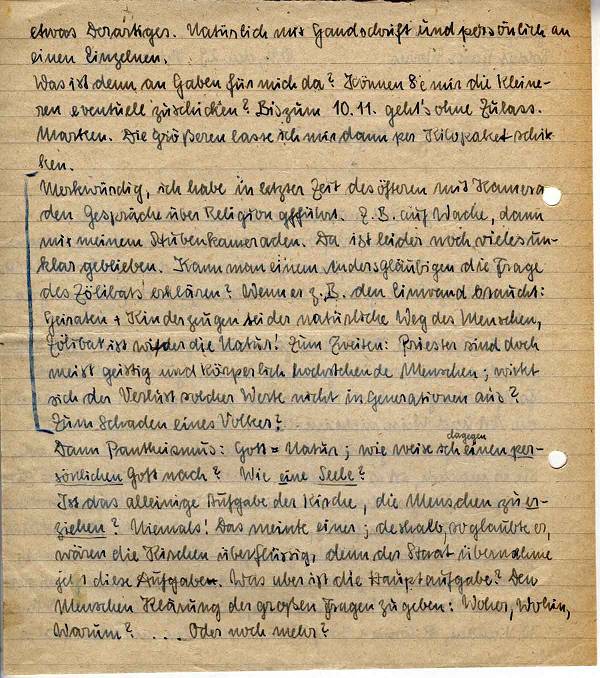 etwas Derartiges. Natürlich mit Handschrift und persönlich an
einen Einzelnen.
Was ist denn an Gaben für mich da? Können Sie mir die Kleine-
ren eventuell zuschicken? Bis zum 10.11. geht's ohne Zulass.
Marken. Die Größeren lasse ich mir dann per Kilopaket schik-
ken.
Merkwürdig, ich habe in letzter Zeit des öfteren mit Kamera
den Gespräche über Religion geführt. Z.B. auf Wache, dann
mit meinem Stubenkameraden. Da ist leider noch vieles un-
klar geblieben. Kann man einem Andersgläubigen die Frage
des Zölibats erklären? Wenn er z.B. den Einwand braucht:
Heiraten + Kinderzeugen sei der natürliche Weg des Menschen,
Zölibat ist wider die Natur! Zum Zweiten: Priester sind doch
meist geistig und körperlich hochstehende Menschen; wirkt
sich der Verlust solcher Werte nicht in Generationen aus?
Zum Schaden eines Volkes?
Dann Pantheismus: Gott = Natur; wie weise ich dagegen einen per-
sönlichen Gott nach? Wie eine Seele?
Ist das alleinige Aufgabe der Kirche, die Menschen zu er-
ziehen? Niemals! Das meinte einer; deshalb, so glaubte er,
wären die Kirchen überflüssig, denn der Staat übernehme
jetzt diese Aufgaben. Was aber ist die Hauptaufgabe? Den
Menschen Klärung der großen Fragen zu geben: Woher, Wohin,
Warum? ... Oder noch mehr?